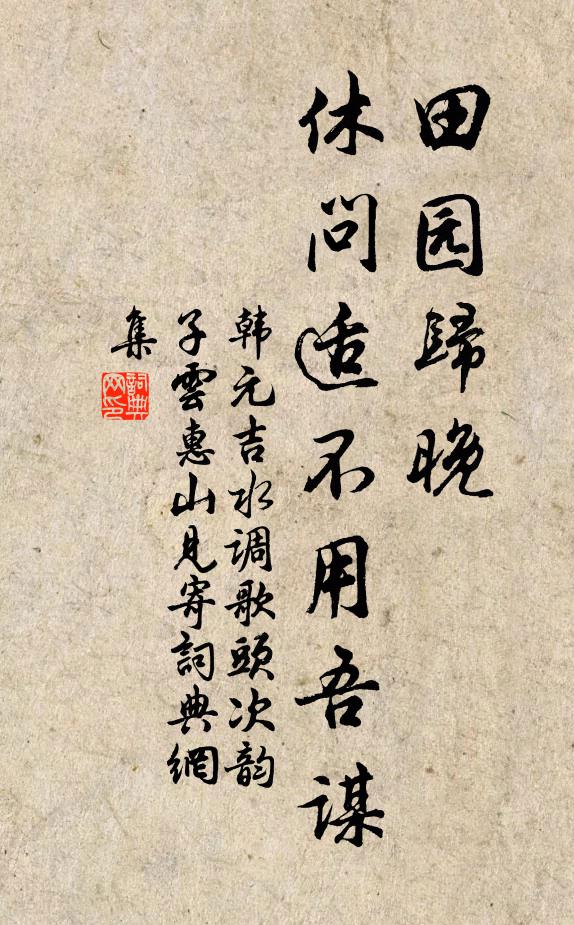 田园歸晚
休问适不用吾谋
韩元吉水调歌頭次韵
子雲惠山见寄詞典網
集
詞典
网印